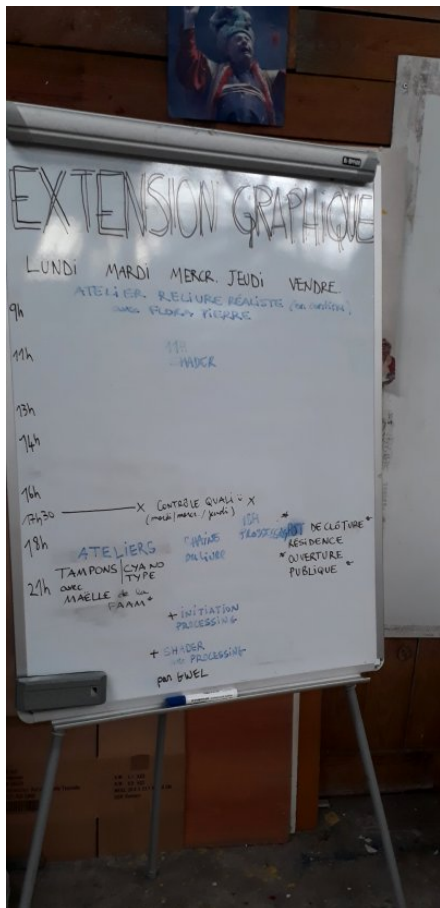 EXTENSION GRAPHIQUE
LUNDI MARDI MERCR. JEUDI VENDRE.
ATELIER RELIURE RÉALISTE
avec FLORA PIERRE
9h
11h
11H
SHADER
13h
14h
16h
17h30 X CONTRÔLE QUALI X
(mardi/mercr/jeudi)
18h
ATELIERS
TAMPONS / CYANO
TYPE
avec
MAËLLE de la
FAAM*
21h
CHAÎNE
DU LIVRE
15H
*
DE CLÔTURE*
RÉSIDENCE
*OUVERTURE
PUBLIQUE*
+ INITIATION
PROCESSING
+ SHADER
PROCESSING
par GWEL